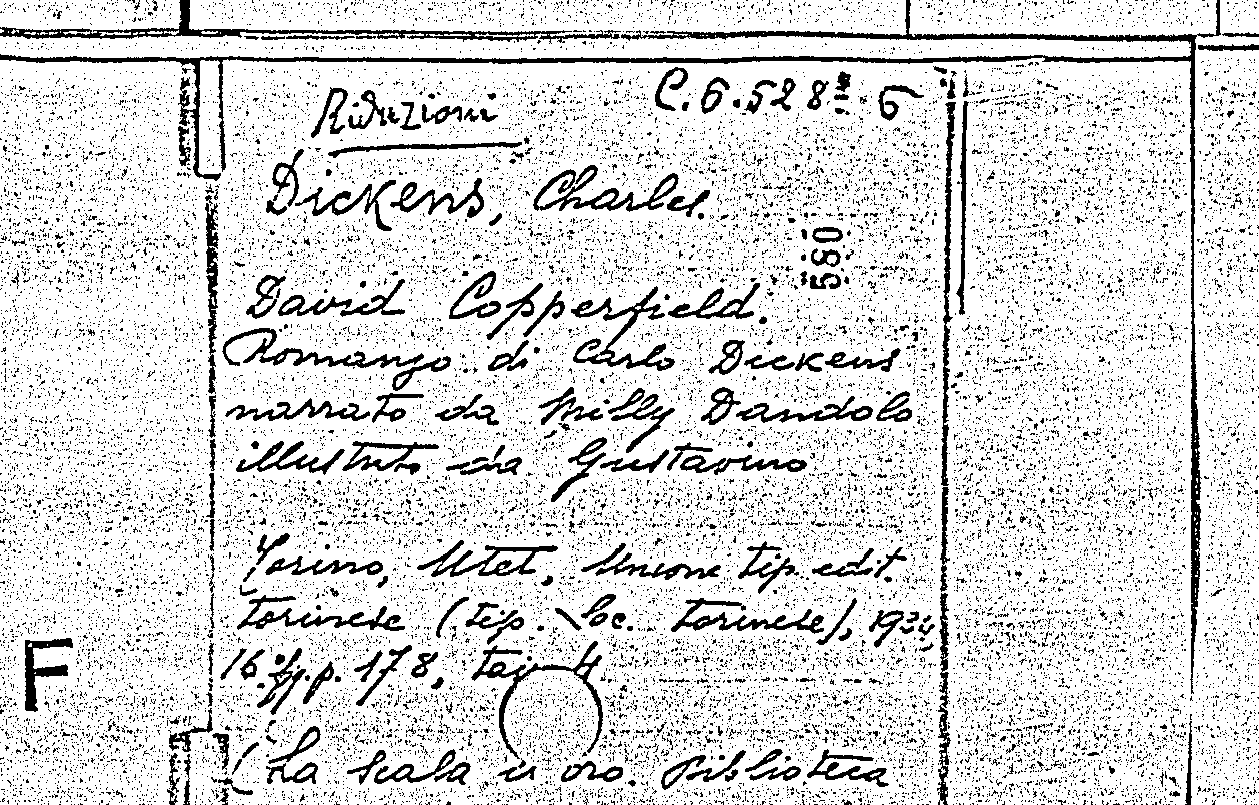 Riduzioni
C.6.528 6
Dickens, Charles.
580
David Copperfield.
Romanzo di Carlo Dickens
narrato da Milly Dandolo
illustrato da Gustavino
Torino, Utet, Unione tip. edit.
torinese (tip. soc. torinese), 1934
16. fig. p. 178, tav. 4
(La scala d' oro. Biblioteca
F